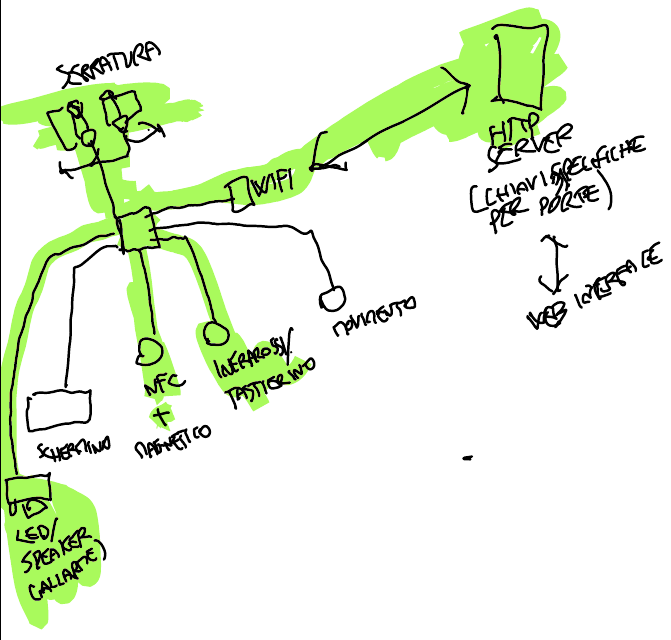 SERRATURA
HTTP
SERVER
(CHIAVI SPECIFICHE
PER PORTE)
WIFI
WEB INTERFACE
MOVIMENTO
INFRAROSSI/
TASTIERINO
NFC
+
MAGNETICO
SCHERMINO
LED/
SPEAKER